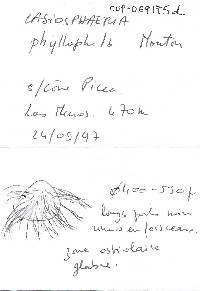 CUP-069175d.
LASIOSPHAERIA
phyllophila Mouton
s/cône Picea
Las Planas. 470m
24/09/97
Ø 400-530µ
longs poils noirs
unis en faisceaux.
zone ostiolaire
glabre.